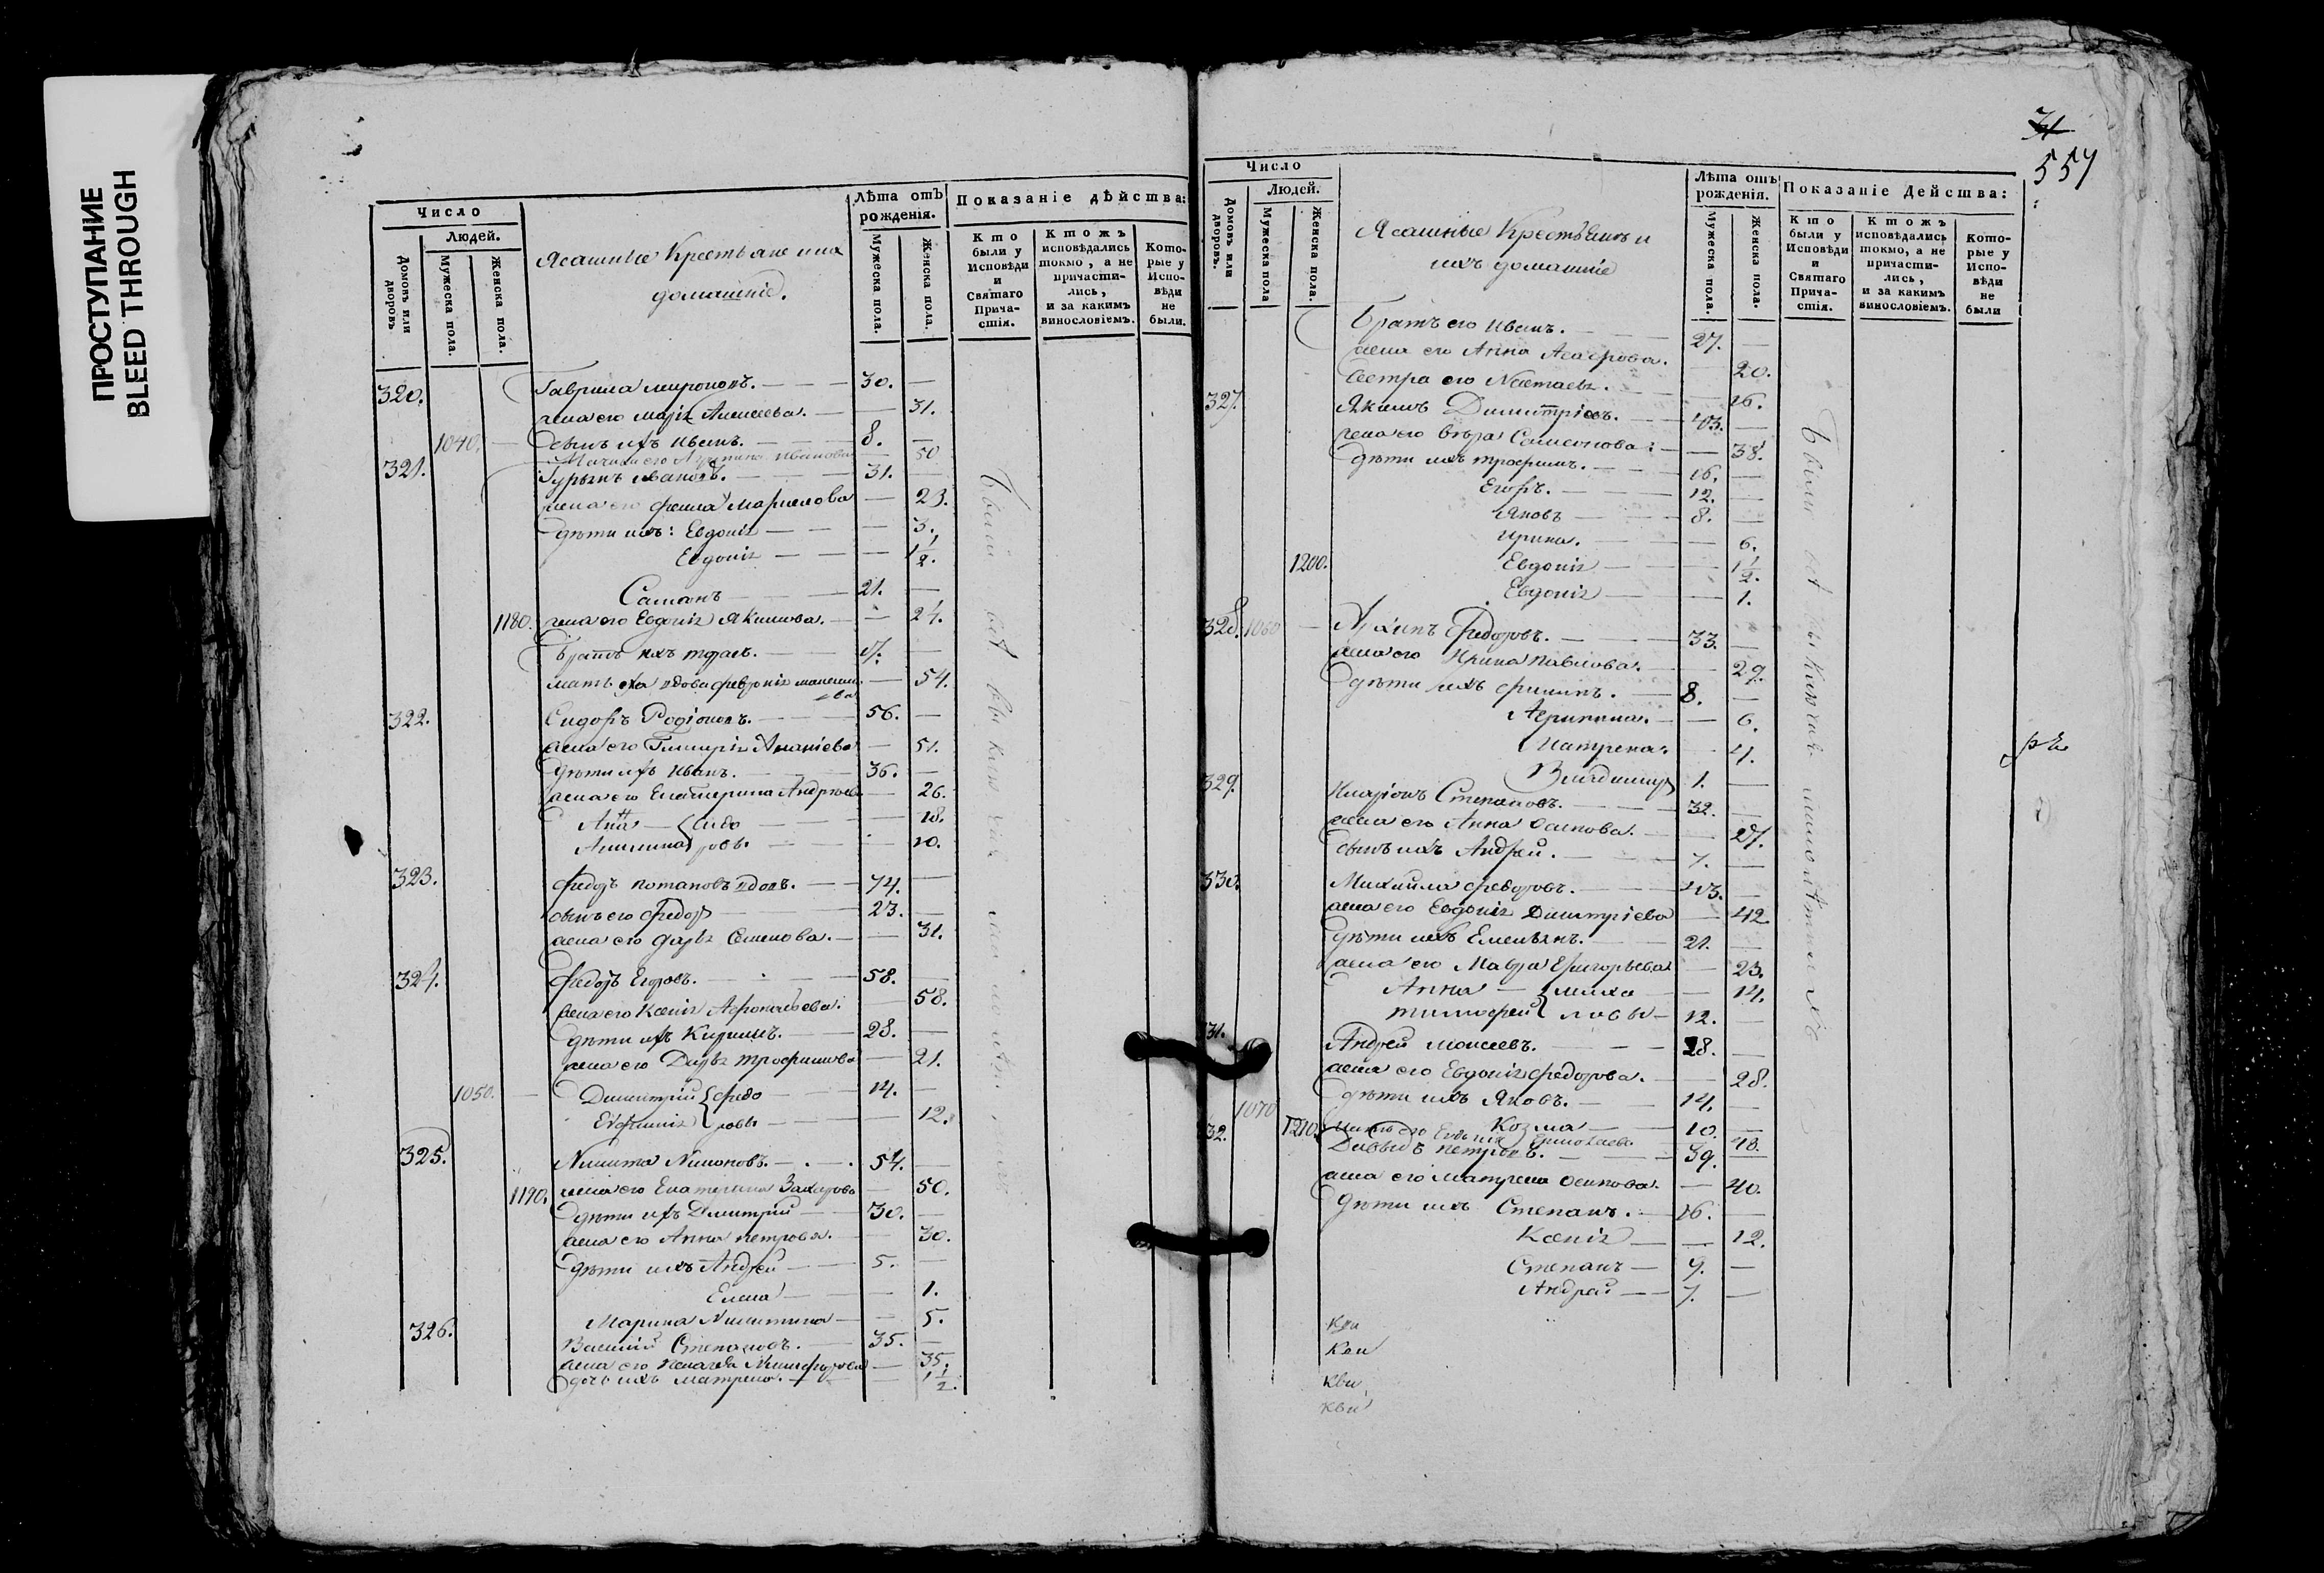 ПРОСТУПАНИЕ
BLEED THROUGH
Число
Людей.
Домовъ или дворовъ
Мужеска пола.
Женска пола.
Ясашные Крестьяне и их
домашніе.
Лѣта отъ
рожденія.
Мужеска пола.
Женска пола.
Показаніе дѣйства:
Кто
были у
Исповѣди
и
Святаго
Прича-
стія.
Ктожъ
исповѣдались
токмо, а не
причасти-
лись,
и за какимъ
винословіемъ.
Кото-
рые у
Испо-
вѣди
не
были.
320. Гаврила Мироновъ. 30. —
жена его Марія Алексеева. — 31.
1040. сынъ ихъ Иванъ. 8. —
Ивановa — 50
321. Гурьянъ Ивановъ. 31. —
жена его — 23.
дѣти ихъ: Евдокія — 3.
Евдокія — 1 1/2.
Самсонъ 21. —
1180. жена его Евдокія Якимова. — 24.
братъ ихъ —
мать их вдова Февронія — 54.
322. Сидоръ Родіоновъ. 56. —
жена его Гликерія Ананіева — 51.
дѣти ихъ Иванъ. 36. —
жена его Екатерина Андреева — 26.
Анна — Сидо — 18.
Акилина ровы — 10.
323. Федоръ Потаповъ вдовъ. 74. —
сынъ его Федоръ 23. —
жена его Дарья Семенова. — 31.
324. Федоръ Егоровъ. 58. —
жена его Ксенія Афонасьева. — 58.
дѣти ихъ Кирилъ. 28. —
жена его Дарья Трофимова — 21.
1050. Димитрій Федо 14. —
Евфимія ровы — 12.
325. Никита Никоновъ. 54. —
1190. жена его Екатерина Захарова — 50.
дѣти ихъ Димитрій 30. —
жена его Анна Петрова. — 30.
дѣти ихъ Андрей 5. —
Елена — 1.
Марина Никитина — 5.
326. Василій Степановъ. 35. —
жена его Пелагея Никифорова — 35.
дочь ихъ Матрена. — 1 1/2.
Были
31
557
Число
Людей.
Домовъ или дворовъ.
Мужеска пола
Женска пола.
Ясашные Крестьяне и
ихъ домашніе
Лѣта отъ
рожденія.
Мужеска пола.
Женска пола.
Показаніе Действа:
Кто
были у
Исповѣди
и
Святаго
Прича-
стія.
Ктожъ
исповѣдались
токмо, а не
причасти-
лись,
и за какимъ
винословіемъ.
Кото-
рые у
Испо-
вѣди
не
были
Братъ его Иванъ. 27. —
жена его Анна — 20.
сестра его — 16.
327. Якимъ Димитріевъ. 43. —
жена его Вѣра Самсонова. — 38.
дѣти ихъ Трофимъ. 16. —
Егоръ. 12. —
Яковъ 8. —
Ирина. — 6.
1200. Евдокія — 1 1/2.
Евдокія — 1.
328. 1060 Архипъ Федоровъ. 33. —
жена его Ирина Павлова. — 29.
дѣти ихъ Филипъ. 8. —
Агрипина. — 6.
Матрена. — 4.
Владимиръ 1. —
329. Иларіонъ Степановъ. 32. —
жена его Анна Осипова. — 27.
сынъ ихъ Андрей. 7. —
330. Михайла Федоровъ. 43. —
жена его Евдокія Димитріева — 42
дѣти ихъ Емельянъ. 21. —
жена его Мавра Григорьева — 23.
Анна — Миха — 14.
Тимофей ловы 12. —
31. Андрей Моисеевъ. 28. —
жена его Евдокія Федорова. — 28.
дѣти ихъ Яковъ. 14. —
1070 Козма 10. —
1210. Ермолаева 48.
32. Давыдъ Петровъ. 39. —
жена его Матрена Осипова. — 40.
дѣти ихъ Степанъ. 16. —
Ксенія — 12.
Степанъ 9. —
Андрей 7. —
Были